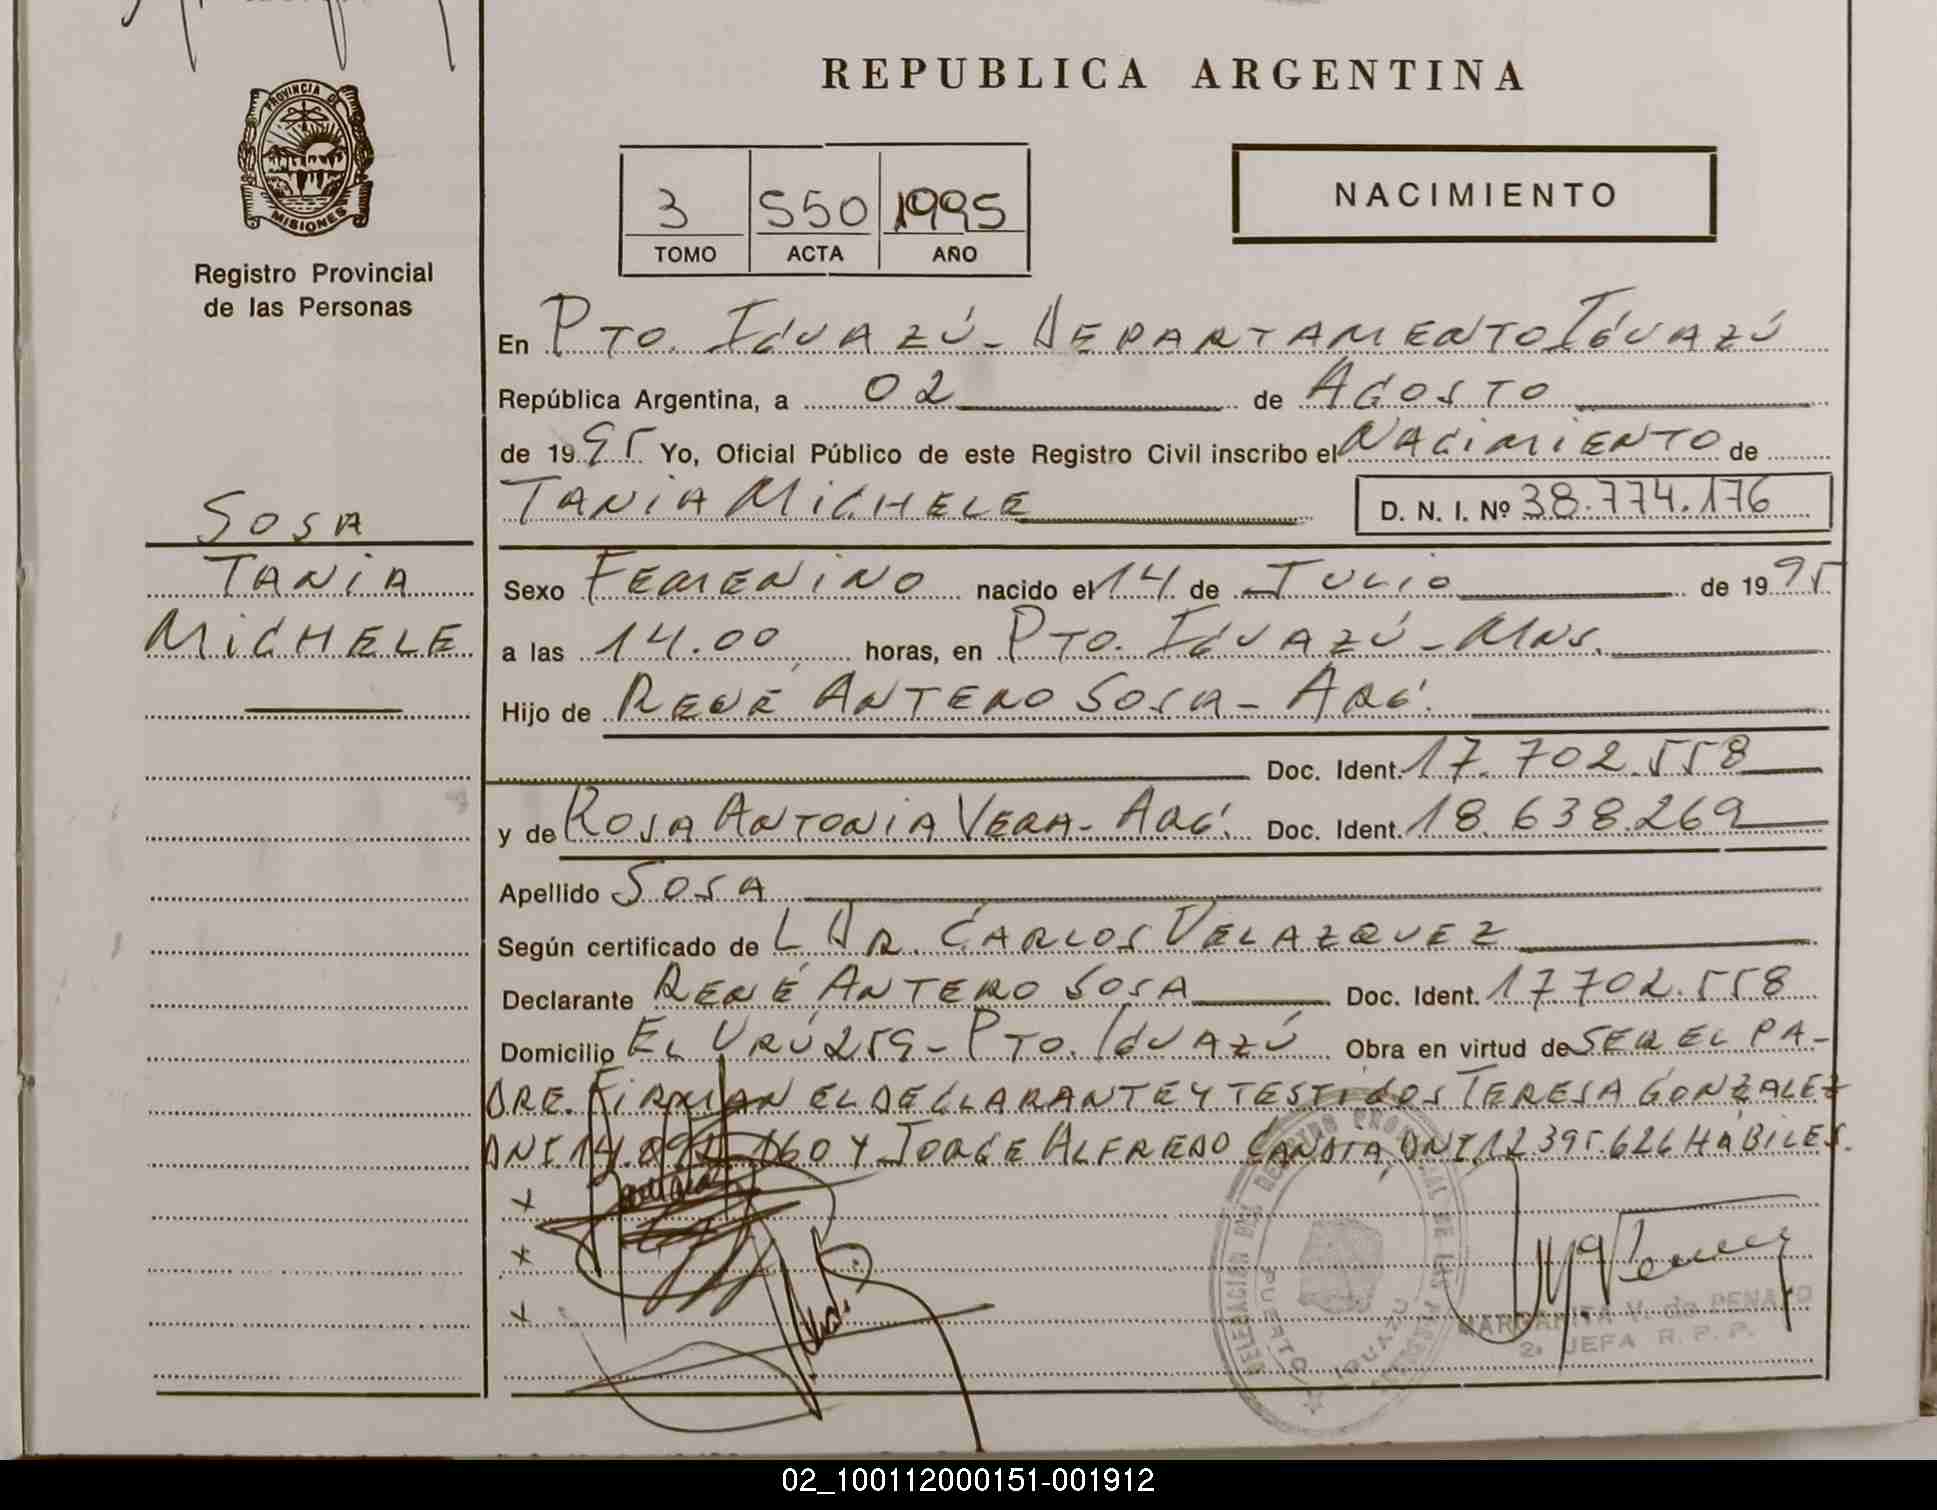 REPUBLICA ARGENTINA
PROVINCIA DE
MISIONES
Registro Provincial
de las Personas
3 550 1995
TOMO ACTA AÑO
NACIMIENTO
En PTO. IGUAZÚ - DEPARTAMENTO IGUAZÚ
República Argentina, a 02 de AGOSTO
de 1995 Yo, Oficial Público de este Registro Civil inscribo el NACIMIENTO de
TANIA MICHELE D. N. I. Nº 38.774.176
SOSA
TANIA
MICHELE
Sexo FEMENINO nacido el 14 de JULIO de 1995
a las 14.00 horas, en PTO. IGUAZÚ - MNS.
Hijo de RENÉ ANTERO SOSA - ARG.
Doc. Ident. 17.702.558
y de ROSA ANTONIA VERA - ARG. Doc. Ident. 18.638.269
Apellido SOSA
Según certificado de L DR. CARLOS VELAZQUEZ
Declarante RENÉ ANTERO SOSA Doc. Ident. 17702.558
Domicilio EL URÚ 259 - PTO. IGUAZÚ Obra en virtud de SER EL PA-
DRE. FIRMAN EL DECLARANTE Y TESTIGOS TERESA GONZALEZ
DNI 160 Y JORGE ALFREDO DNI 12.395.626 HÁBILES.
x
x
x
DELEGACION DEL REGISTRO PROVINCIAL DE LAS PERSONAS
PUERTO IGUAZU
MARGARITA V. de PENAYO
2ª JEFA R. P. P.
02_100112000151-001912